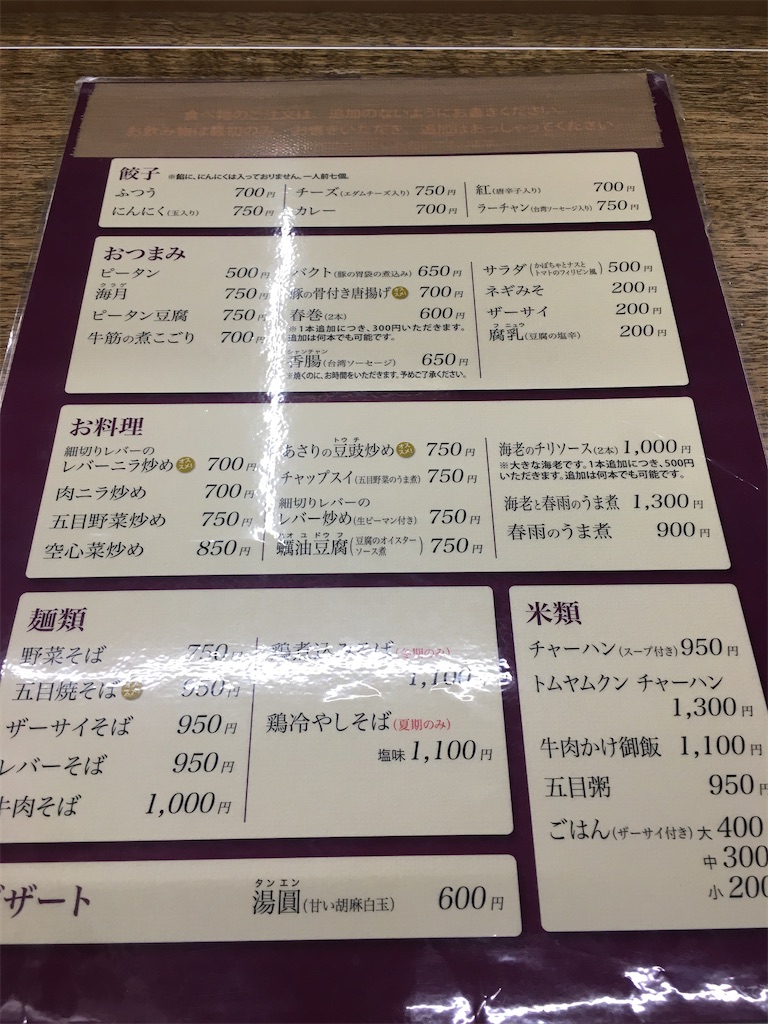 食べ物のご注文は、追加のないようにお書きください。
お飲み物は最初のみ、お書きいただき、追加はおっしゃってください。
餃子 ※餡に、にんにくは入っておりません。一人前七個。
ふつう 700円
にんにく(玉入り) 750円
チーズ(エダムチーズ入り) 750円
カレー 700円
紅(唐辛子入り) 700円
ラーチャン(台湾ソーセージ入り) 750円
おつまみ
ピータン 500円
クラゲ
海月 750円
ピータン豆腐 750円
牛筋の煮こごり 700円
バクト(豚の胃袋の煮込み) 650円
豚の骨付き唐揚げ オススメ 700円
春巻(2本) 600円
※1本追加につき、300円いただきます。
追加は何本でも可能です。
シャンチャン
香腸(台湾ソーセージ) 650円
※焼くのに、お時間をいただきます。予めご了承ください。
サラダ(かぼちゃとナスとトマトのフィリピン風) 500円
ネギみそ 200円
ザーサイ 200円
フニュウ
腐乳(豆腐の塩辛) 200円
お料理
細切りレバーの
レバーニラ炒め オススメ 700円
肉ニラ炒め 700円
五目野菜炒め 750円
空心菜炒め 850円
トウチ
あさりの豆豉炒め オススメ 750円
チャップスイ(五目野菜のうま煮) 750円
細切りレバーの
レバー炒め(生ピーマン付き) 750円
ハオユドウフ
蠣油豆腐(豆腐のオイスターソース煮) 750円
海老のチリソース(2本) 1,000円
※大きな海老です。1本追加につき、500円
いただきます。追加は何本でも可能です。
海老と春雨のうま煮 1,300円
春雨のうま煮 900円
麺類
野菜そば 750円
五目焼そば オススメ 950円
ザーサイそば 950円
レバーそば 950円
牛肉そば 1,000円
鶏煮込みそば(冬期のみ)
1,100円
鶏冷やしそば(夏期のみ)
塩味 1,100円
米類
チャーハン(スープ付き) 950円
トムヤムクン チャーハン
1,300円
牛肉かけ御飯 1,100円
五目粥 950円
ごはん(ザーサイ付き) 大 400
中 300
小 200
デザート
タンエン
湯圓(甘い胡麻白玉) 600円